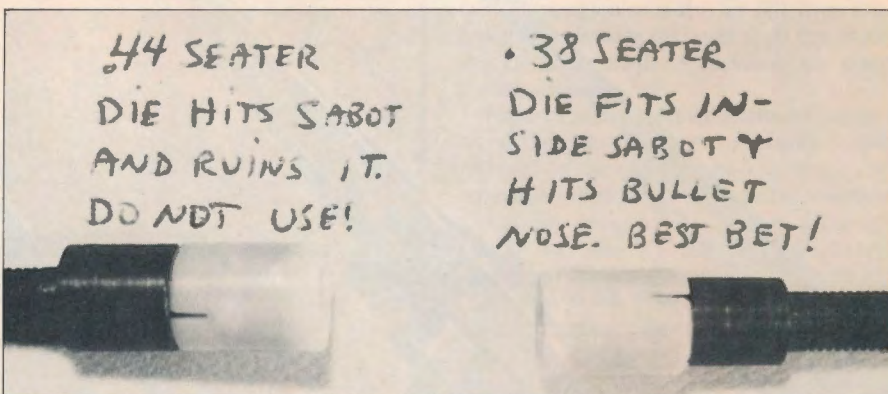 .44 SEATER
DIE HITS SABOT
AND RUINS IT.
DO NOT USE!
.38 SEATER
DIE FITS IN-
SIDE SABOT &
HITS BULLET
NOSE. BEST BET!